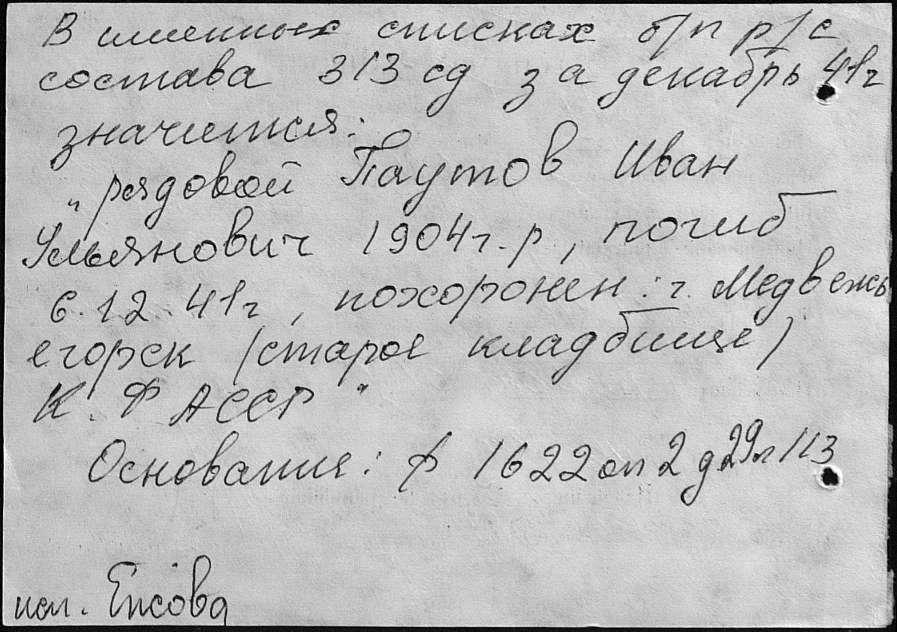 В именных списках б/п р/с
состава 313 сд за декабрь 41г
значится:
„рядовой Паутов Иван
Ульянович 1904г.р, погиб
6.12.41г, похоронен: г. Медвежь
егорск (старое кладбище)
К.Ф АССР"
Основание: ф 1622 оп 2 д 29 л 113
исп.